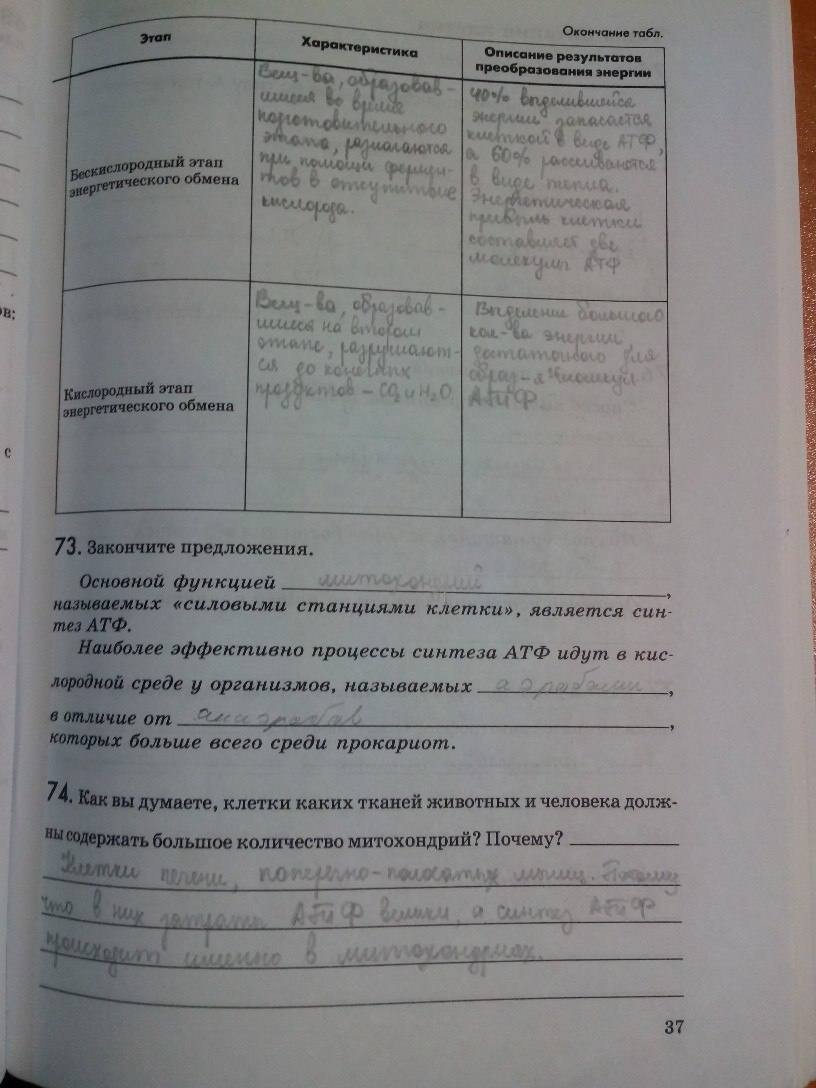 Окончание табл.
Этап
Характеристика
Описание результатов
преобразования энергии
Бескислородный этап
энергетического обмена
Вещ-ва, образовав-
шиеся во время
подготовительного
этапа, разлагаются
при помощи фермен-
тов в отсутствие
кислорода.
40% выделившейся
энергии запасается
клеткой в виде АТФ,
а 60% рассеиваются
в виде тепла.
Энергетическая
прибыль клетки
составляет две
молекулы АТФ
Кислородный этап
энергетического обмена
Вещ-ва, образовав-
шиеся на втором
этапе, разрушают-
ся до конечных
продуктов – CO₂ и H₂O
Выделение большого
кол-ва энергии,
достаточного для
образ-я молекул
АТФ
ов:
с
73. Закончите предложения.
Основной функцией митохондрий,
называемых «силовыми станциями клетки», является син-
тез АТФ.
Наиболее эффективно процессы синтеза АТФ идут в кис-
лородной среде у организмов, называемых аэробами,
в отличие от анаэробов,
которых больше всего среди прокариот.
74. Как вы думаете, клетки каких тканей животных и человека долж-
ны содержать большое количество митохондрий? Почему?
Клетки печени, поперечно-полосатых мышц. Потому
что в них затраты АТФ велики, а синтез АТФ
происходит именно в митохондриях.
37